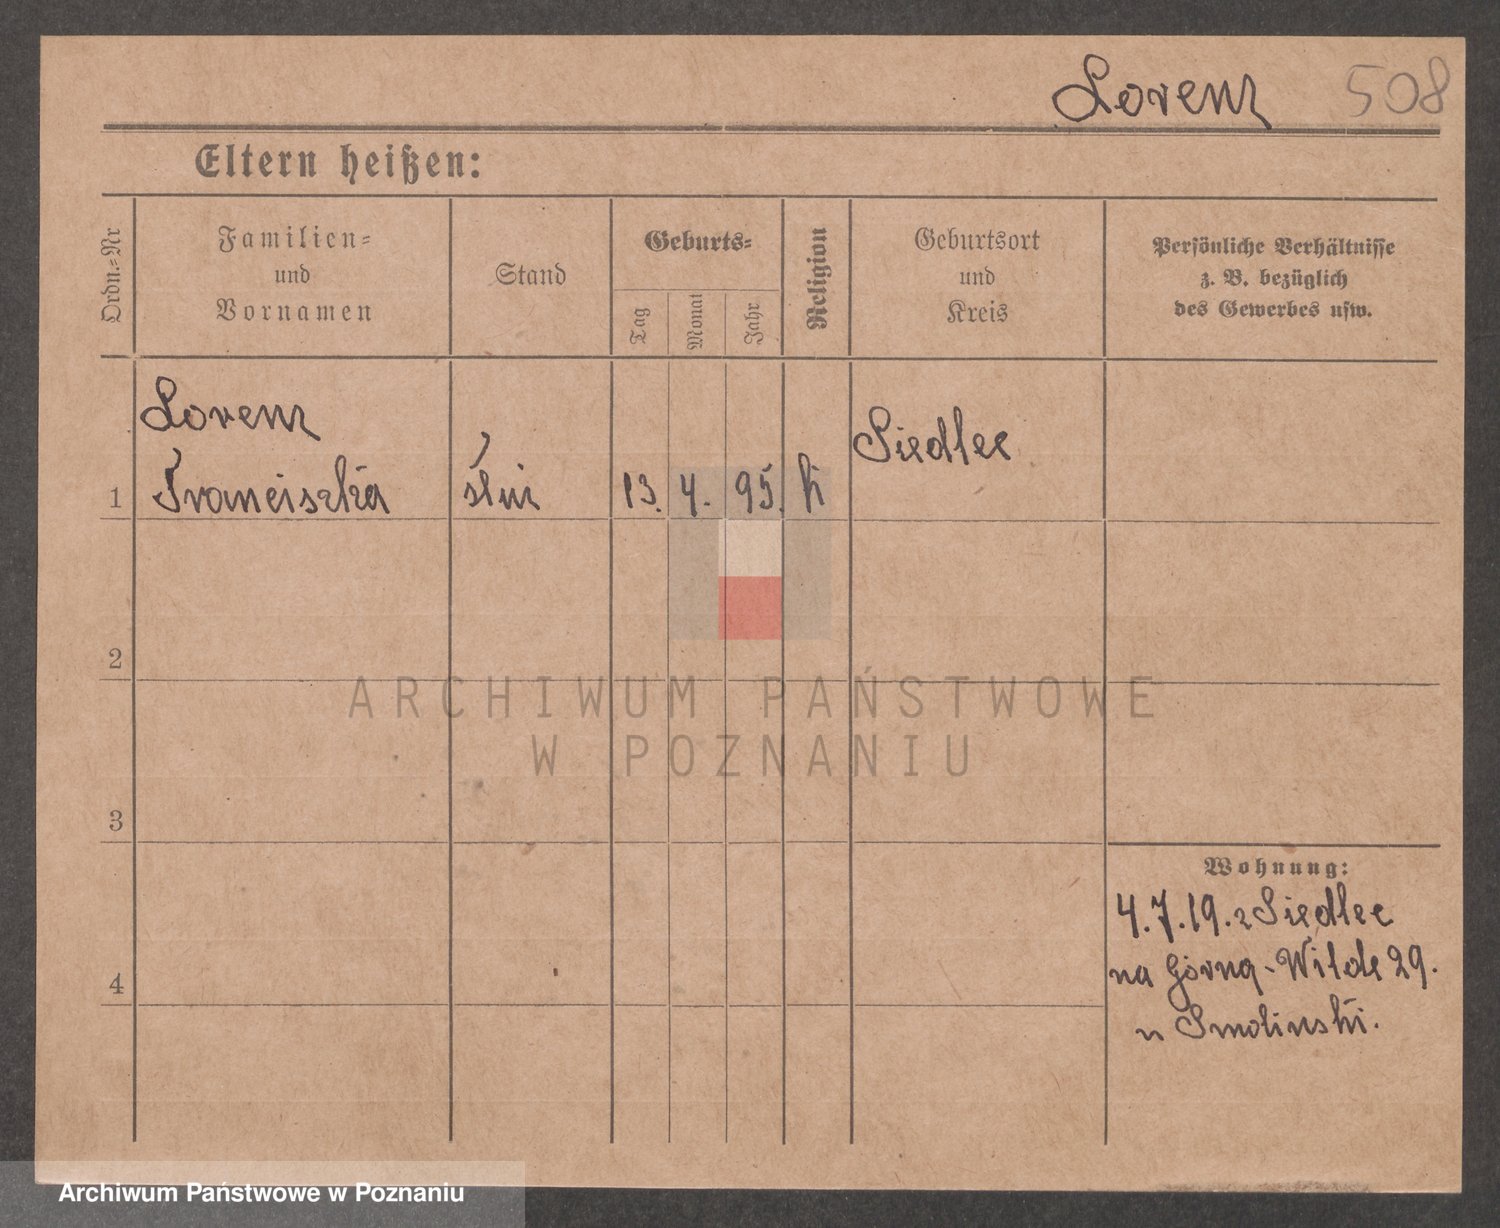 Lorenz 508
Eltern heißen:
Ordn.=Nr
Familien=
und
Vornamen
Stand
Geburts=
Tag
Monat
Jahr
Religion
Geburtsort
und
Kreis
Persönliche Verhältnisse
z. B. bezüglich
des Gewerbes usw.
Lorenz
1 Franciszka 13. 4. 95. k
Siedlec
2
3
4
Wohnung:
4.7.19. z Siedlec
na Górną-Wildę 29.
u Smolinski.
ARCHIWUM PAŃSTWOWE
W POZNANIU
Archiwum Państwowe w Poznaniu